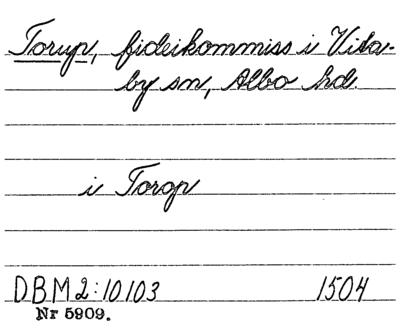 Torup, fideikommiss i Vita-
by sn, Albo hd.
i Torop
DBM 2:10103 1504
Nr 5909.